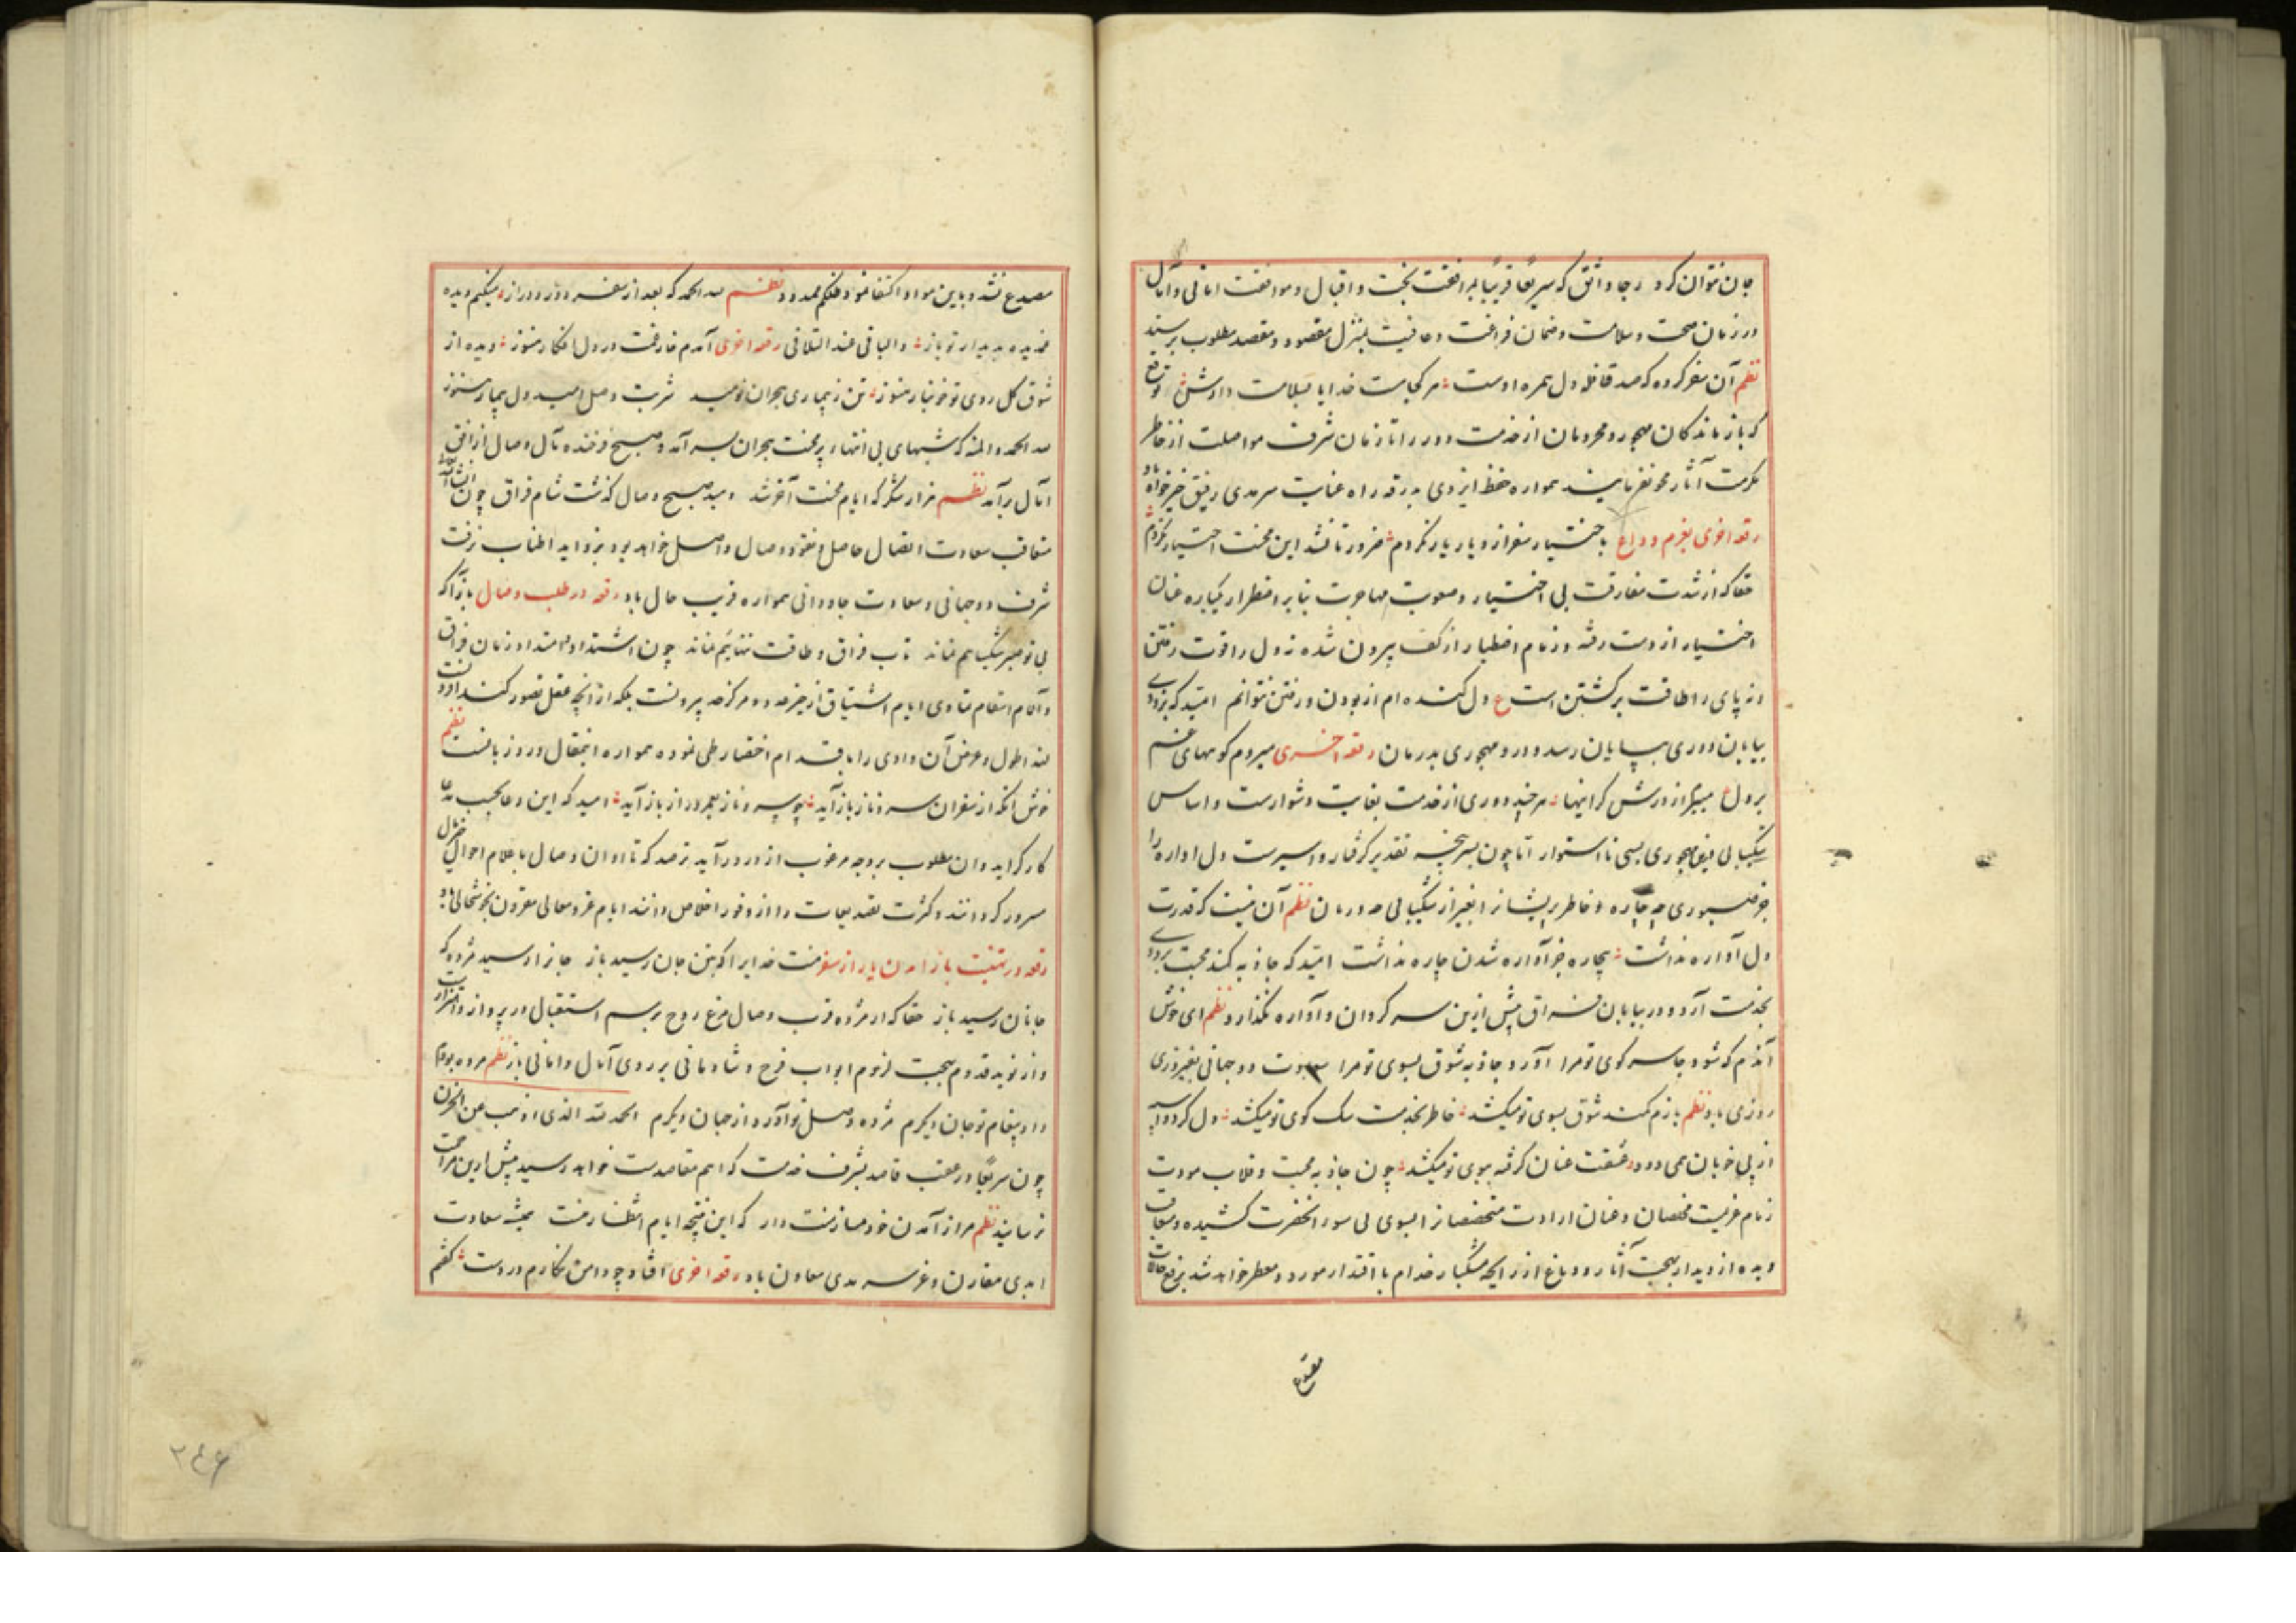 جان نتوان کرد رجا واثق که سریعاً قریباً بمرافقت بخت و اقبال و موافقت امانی و آمال
در زمان صحت و سلامت و ضمان فراغت و عافیت بمنزل مقصود و مقصد مطلوب برسند
نظم آن سفر کرده که صد قافله دل همره اوست هر کجا هست خدایا بسلامت دارش توقع
که بازماندکان مهجور و محرومان از خدمت دور را تا زمان شرف مواصلت از خاطر
مکرمت آثار محو نفرمایند همواره حفظ ایزدی بدرقه راه عنایت سرمدی رفیق خیرخواه باد
رقعه اخری بعزم وداع باختیار سفر از دیار یار نکردم ضرورتا نشد این محنت اختیار نکردم
حقا که از شدت مفارقت بی اختیار و صعوبت مهاجرت بنا بر اضطرار یکباره عنان
اختیار از دست رفته و زمام اصطبار از کف بیرون شده نه دل را قوت رفتن
و نه پای را طاقت برکشتن است ع دل کنده ام از بودن و رفتن نتوانم امید که بزودی
بیابان دوری بپایان رسد و درد مهجوری بدرمان رقعه اخری میروم کوههای غم
بر دل میبرم از درش کرانیها هر چند دوری از خدمت بغایت دشوارست و اساس
شکیبائی مهجوری بسی نا استوار اما چون بسرپنجه تقدیر کرفتار و اسیرست دل اواره را
جز صبوری چه چاره و خاطر پریشانرا بغیر از شکیبائی چه درمان نظم آن نیست که قدرت
دل آواره نداشت بیچاره جز آواره شدن چاره نداشت امید که جاذبه کمند محبت بزودی
بخدمت آرد و در بیابان فراق بیش ازین سرکردان و آواره نکذارد نظم ای خوش
آندم که شود جا سر کوی تو مرا آورد جاذبه شوق بسوی تو مرا دو جهانی بفیروزی
روزی باد نظم بازم کمند شوق بسوی تو میکشد خاطر بخدمت سک کوی تو میکشد دل کرد و
از پی خوبان همی دود عشقت عنان کرفته بسوی تو میکشد چون جاذبه محبت و قلاب مودت
زمام عزیمت مخلصان و عنان ارادت متخصصانرا بسوی آنحضرت کشیده و
دیده از دیدار بهجت آثار و دماغ از رایحه مشکبار خدام با اقتدار خواهد شد
مصدع
مصدع نشد و باین مواد اکتفا نمود ظلکم ممدود نظم لله الحمد که بعد از سفر دور و دراز میکنیم دیده
غمدیده بدیدار تو باز والباقی عند التلاقی رقعه اخری آمدم فارغت در دل افکار هنوز دیده از
شوق کل روی تو خونبار هنوز تن ز بیماری هجران نومید شربت وصل امید دل بیمار هنوز
لله الحمد والمنه که شبهای بی انتهاء پر محنت هجران بسر آمد و صبح فرخنده مآل وصال از افق
آمال برآمد نظم هزار شکر که ایام محنت آخر شد دمید صبح وصال کذشت شام فراق چون انشاء الله تعالی
متعاقب سعادت اتصال حاصل و وصال واصل خواهد بود اطناب نرفت
شرف دو جهانی و سعادت جاودانی همواره قریب حال باد رقعه در طلب وصال بازآ که
بی تو صبر شکیبا هم نماند تاب فراق و طاقت تنهائیم نماند چون اشتداد امتداد زمان فراق
و آلام ایام اشتیاق از حیز حد و مرکز عد بیرونست بلکه از انچه عقل تصور کند افزونست
لهذا طول و عرض آن وادی را باقدام اختصار طی نموده همواره انتقال وروز بانست نظم
خوش آنکه از سفر آن سرو ناز باز آید چو عمر دراز باز آید امید که این دعا بحسب مدعا
کارکر آید و ان مطلوب بروجه مرغوب از در درآید ترصد که تا اوان وصال باعلام احوال
مسرور کردانند و کثرت تصدیعات را از وفور اخلاص دانند ایام عز و معالی مقرون بخوشحالی باد
رقعه در تهنیت باز آمدن یار از سفر منت خدایرا که بتن جان رسید باز جانرا رسید مژده که
جانان رسید باز حقا که از مژده قرب وصال مرغ روح برسم استقبال در پرواز و اهتزازست
و از نوید قدوم بهجت لزوم ابواب فرح و شادمانی بر روی آمال و امانی باز نظم مرده بودم
داد پیغام تو جان دیکرم مژده وصل تو آورد از جهان دیکرم الحمد لله الذی اذهب عن الحزن
چون سریعاً در عقب قاصد بشرف خدمت که اهم مقاصدست خواهد رسید پیش ازین مزاحمت
نرسانید نظم مرا از آمدن خود منت دار که این نتیجه ایام انتظار منست همیشه سعادت
ابدی مقارن و عز سرمدی معاون باد رقعه اخری افتاد چو دامن نکارم در دست کفتم
۲۴۶